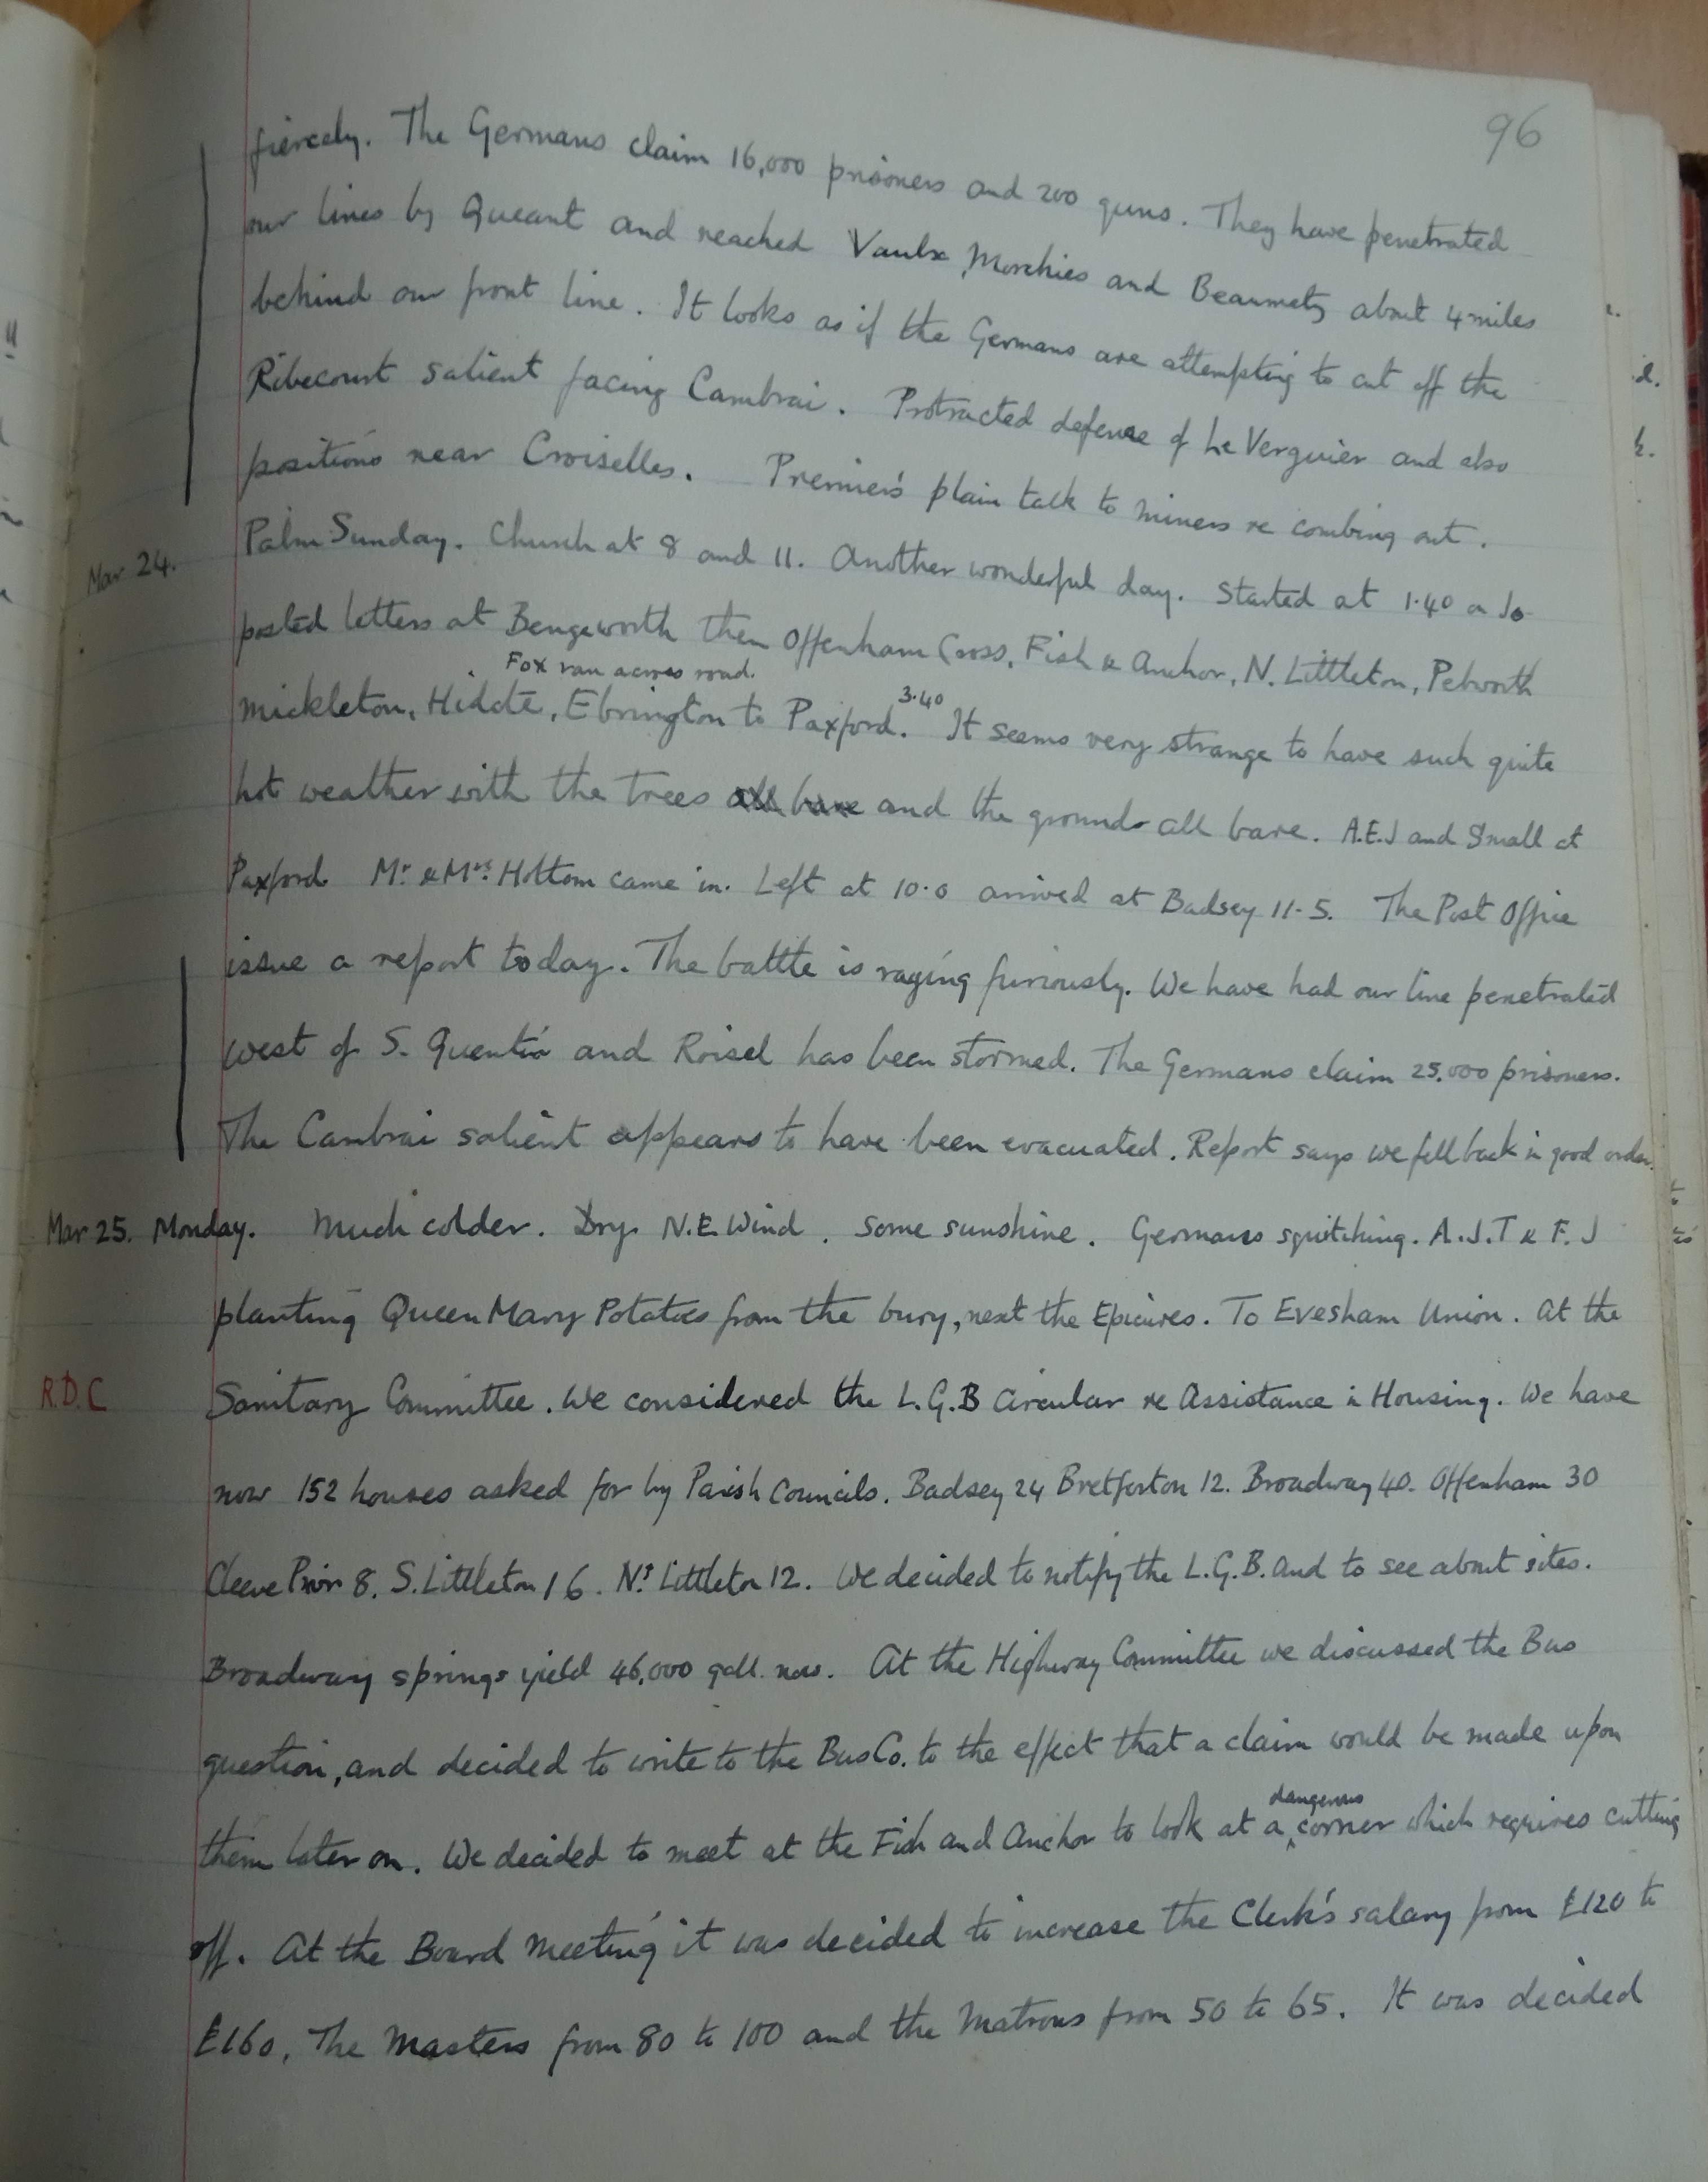 96
fiercely. The Germans claim 16,000 prisoners and 200 guns. They have penetrated
our lines by Queant and reached Vaulx, Morchies and Beaumetz about 4 miles
behind our front line. It looks as if the Germans are attempting to cut off the
Ribecourt salient facing Cambrai. Protracted defence of Le Verguier and also
positions near Croiselles. Premier's plain talk to miners re combing out.
Mar 24. Palm Sunday. Church at 8 and 11. Another wonderful day. Started at 1.40
posted letters at Bengeworth then Offenham Cross, Fish & Anchor, N. Littleton, Pebworth
Fox ran across road.
Mickleton, Hidcote, Ebrington to Paxford. 3.40 It seems very strange to have such quite
hot weather with the trees all bare and the ground all bare. A.E.J and Small at
Paxford. Mr. & Mrs. Hottom came in. Left at 10.0 arrived at Badsey 11-5. The Post Office
issue a report today. The battle is raging furiously. We have had our line penetrated
west of S. Quentin and Roisel has been stormed. The Germans claim 25,000 prisoners.
The Cambrai salient appears to have been evacuated. Report says we fell back in good order.
Mar 25. Monday. Much colder. Dry. N.E Wind. Some sunshine. Germans squitching. A.J.T & F.J
planting Queen Mary Potatoes from the bury, next the Epicures. To Evesham Union. At the
R.D.C Sanitary Committee. We considered the L.G.B Circular re Assistance in Housing. We have
now 152 houses asked for by Parish Councils. Badsey 24 Bretforton 12. Broadway 40. Offenham 30
Cleeve Prior 8. S. Littleton 16. N. Littleton 12. We decided to notify the L.G.B. and to see about sites.
Broadway springs yield 46,000 gall. now. At the Highway Committee we discussed the Bus
question, and decided to write to the Bus Co. to the effect that a claim would be made upon
them later on. We decided to meet at the Fish and Anchor to look at a dangerous corner which requires cutting
off. At the Board Meeting it was decided to increase the Clerk's salary from £120 to
£160. The Masters from 80 to 100 and the Matrons from 50 to 65. It was decided